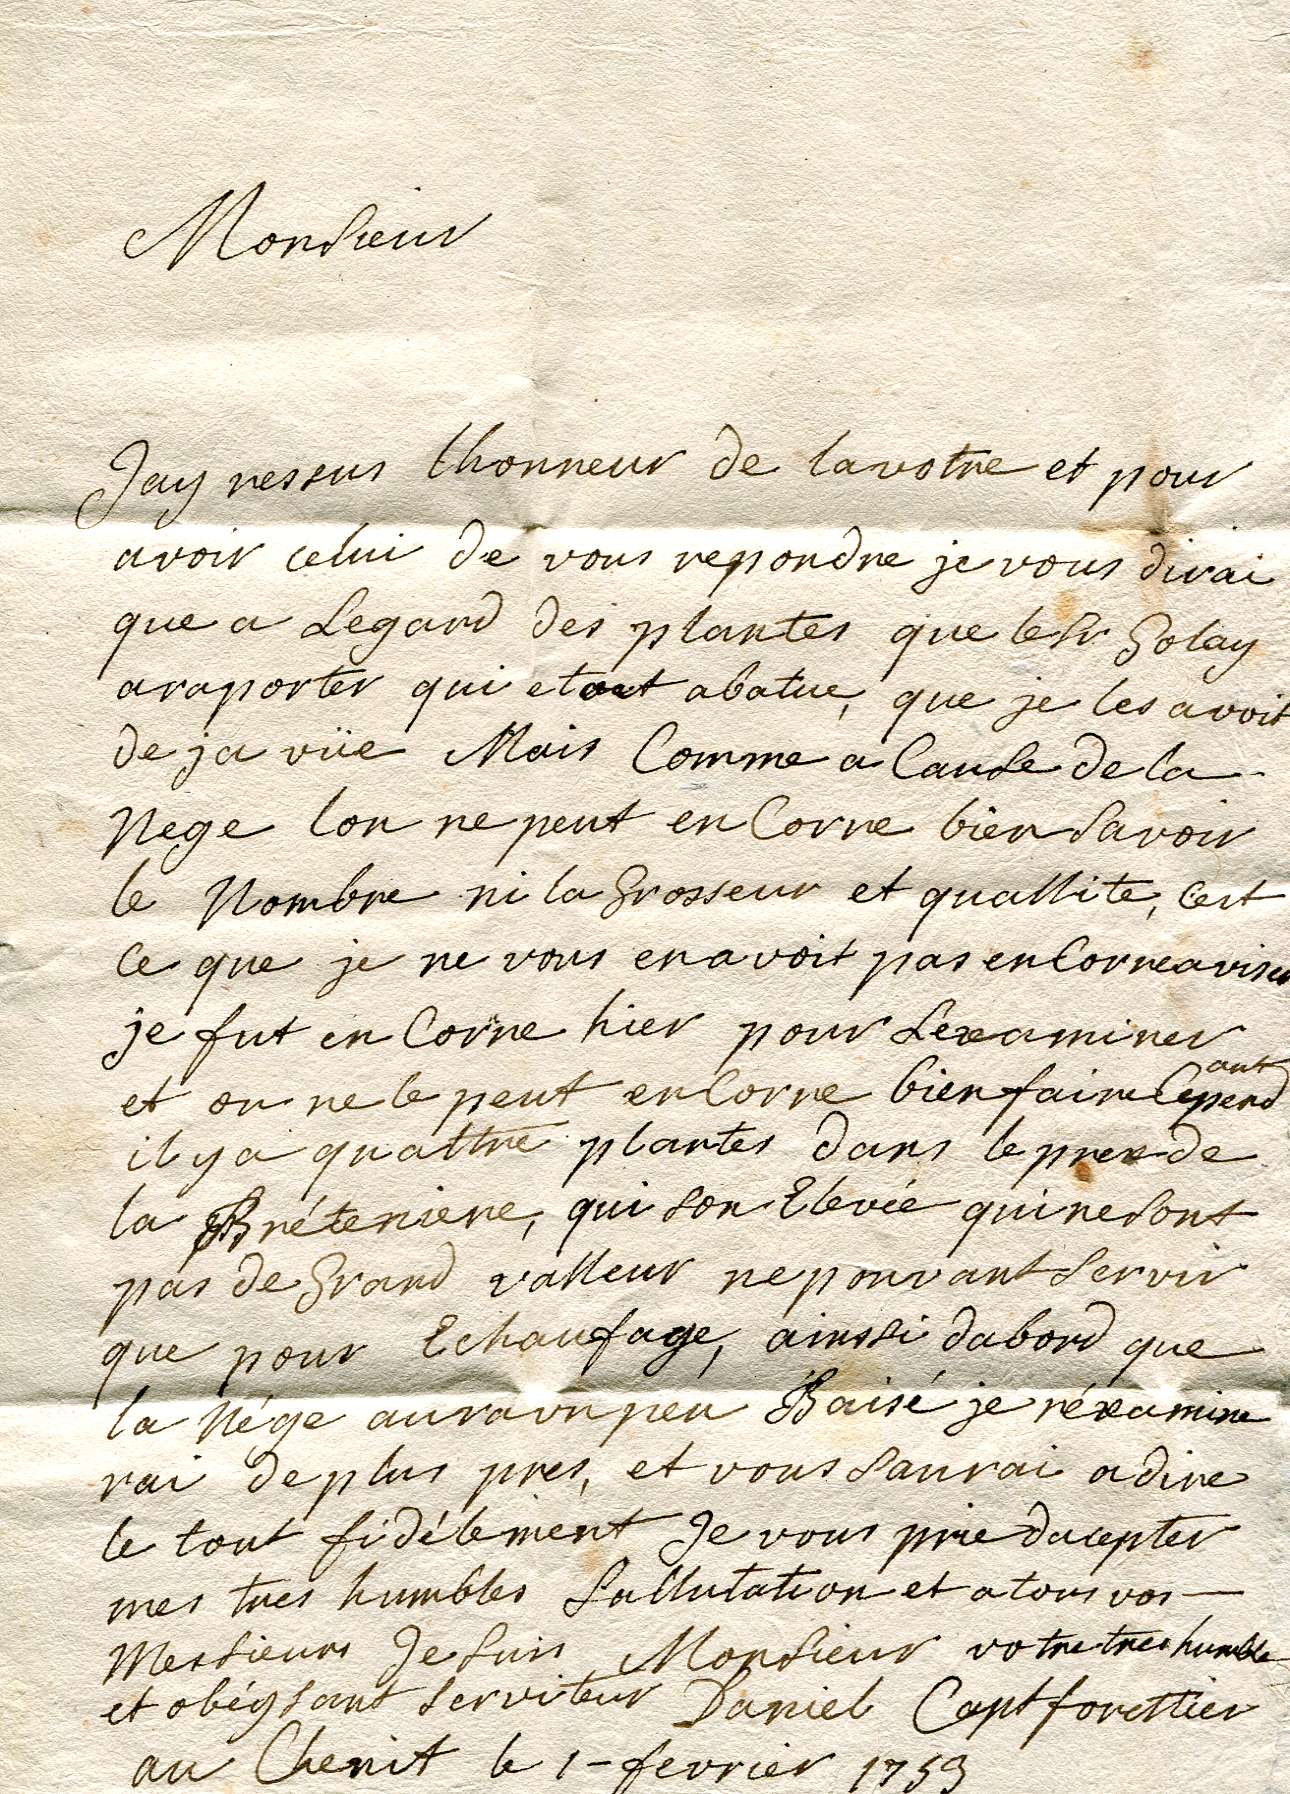 Monsieur
Jay ressus lhonneur de lavotre et pour
avoir celui de vous repondre je vous dirai
que a Legard des plantes que le Sr Golay
araporter qui etoit abatue, que je les avoit
de ja vüe Mais Comme a Cause de la
Nege lon ne peut en Corre bien Savoir
le Nombre ni la Grosseur et quallite, cest
ce que je ne vous en avoit pas en Corre aviser
je fut en Corre hier pour Lexaminer
et on ne le peut en Corre bien faire Cependant
il y a quattre plantes dans le prez de
la Bréteniere, qui son Elevée qui ne sont
pas de Grand valleur ne pouvant Servir
que pour Echaufage, ainssi dabord que
la Nége aura vn peu Baisé je réxamine
rai de plus pres, et vous Saurai a dire
le tout fidélement Je vous prie dacepter
mes tres humbles Sallutation et a tous vos
Messieurs Je Suis Monsieur votre tres humble
et obéysant serviteur Daniel Capt forettier
au Chenit le 1 - fevrier 1759